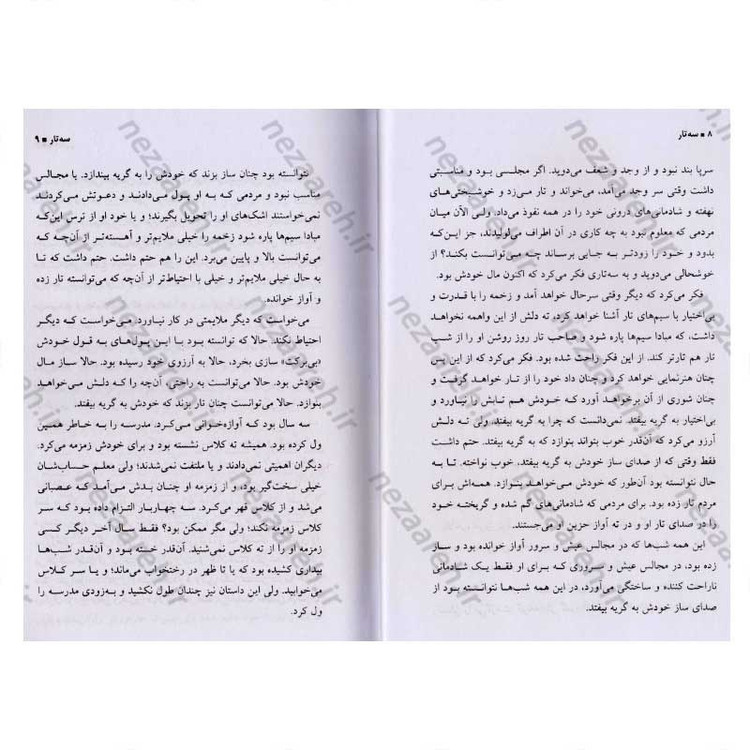 ۸ ■ سه‌تار
سرپا بند نبود و از وجد و شعف می‌دوید. اگر مجلسی بود و مناسبتی
داشت وقتی سر وجد می‌آمد، می‌خواند و تار می‌زد و خوشبختی‌های
نهفته و شادمانی‌های درونی خود را در همه نفوذ می‌داد، ولی الآن میان
مردمی که معلوم نبود به چه کاری در آن اطراف می‌لولیدند، جز این‌که
بدود و خود را زودتر به جایی برساند چه می‌توانست بکند؟ از
خوشحالی می‌دوید و به سه‌تاری فکر می‌کرد که اکنون مال خودش بود.
فکر می‌کرد که دیگر وقتی سرحال خواهد آمد و زخمه را با قدرت و
بی‌اختیار با سیم‌های تار آشنا خواهد کرد، ته دلش از این واهمه نخواهد
داشت، که مبادا سیم‌ها پاره شود و صاحب تار روز روشن او را از شب
تار هم تارتر کند. از این فکر راحت شده بود. فکر می‌کرد که از این پس
چنان هنرنمایی خواهد کرد و چنان داد خود را از تار خواهد گرفت و
چنان شوری از آن برخواهد آورد که خودش هم تابش را نیاورد و
بی‌اختیار به گریه بیفتد. نمی‌دانست که چرا به گریه بیفتد. ولی ته دلش
آرزو می‌کرد که آن‌قدر خوب بتواند بنوازد که به گریه بیفتد. حتم داشت
فقط وقتی که از صدای ساز خودش به گریه بیفتد، خوب نواخته. تا به
حال نتوانسته بود آن‌طور که خودش می‌خواهد بنوازد. همه‌اش برای
مردم تار زده بود. برای مردمی که شادمانی‌های گم شده و گریخته خود
را در صدای تار او و در ته آواز حزین او می‌جستند.
این همه شب‌ها که در مجالس عیش و سرور آواز خوانده بود و ساز
زده بود، در مجالس عیش و سروری که برای او فقط یک شادمانی
ناراحت کننده و ساختگی می‌آورد، در این همه شب‌ها نتوانسته بود از
صدای ساز خودش به گریه بیفتد.
سه‌تار ■ ۹
نتوانسته بود چنان ساز بزند که خودش را به گریه بیندازد. یا مجالس
مناسب نبود و مردمی که به او پول می‌دادند و دعوتش می‌کردند
نمی‌خواستند اشک‌های او را تحویل بگیرند؛ و یا خود او از ترس این‌که
مبادا سیم‌ها پاره شود زخمه را خیلی ملایم‌تر و آهسته‌تر از آن‌چه که
می‌توانست بالا و پایین می‌برد. این را هم حتم داشت. حتم داشت که تا
به حال خیلی ملایم‌تر و خیلی با احتیاط‌تر از آن‌چه که می‌توانسته تار زده
و آواز خوانده.
می‌خواست که دیگر ملایمتی در کار نیاورد. می‌خواست که دیگر
احتیاط نکند. حالا که توانسته بود با این پول‌های به قول خودش
«بی‌برکت» سازی بخرد، حالا به آرزوی خود رسیده بود. حالا ساز مال
خودش بود. حالا می‌توانست به راحتی، آن‌چه را که دلش می‌خواهد
بنوازد. حالا می‌توانست چنان تار بزند که خودش به گریه بیفتد.
سه سال بود که آوازه‌خوانی می‌کرد. مدرسه را به خاطر همین
ول کرده بود. همیشه ته کلاس نشسته بود و برای خودش زمزمه می‌کرد.
دیگران اهمیتی نمی‌دادند و یا ملتفت نمی‌شدند؛ ولی معلم حساب‌شان
خیلی سخت‌گیر بود، و از زمزمه او چنان بدش می‌آمد که عصبانی
می‌شد و از کلاس قهر می‌کرد. سه چهاربار التزام داده بود که سر
کلاس زمزمه نکند؛ ولی مگر ممکن بود؟ فقط سال آخر دیگر کسی
زمزمه او را از ته کلاس نمی‌شنید. آن‌قدر خسته بود و آن‌قدر شب‌ها
بیداری کشیده بود که یا تا ظهر در رختخواب می‌ماند؛ و یا سر کلاس
می‌خوابید. ولی این داستان نیز چندان طول نکشید و به‌زودی مدرسه را
ول کرد.
nezaareh.ir